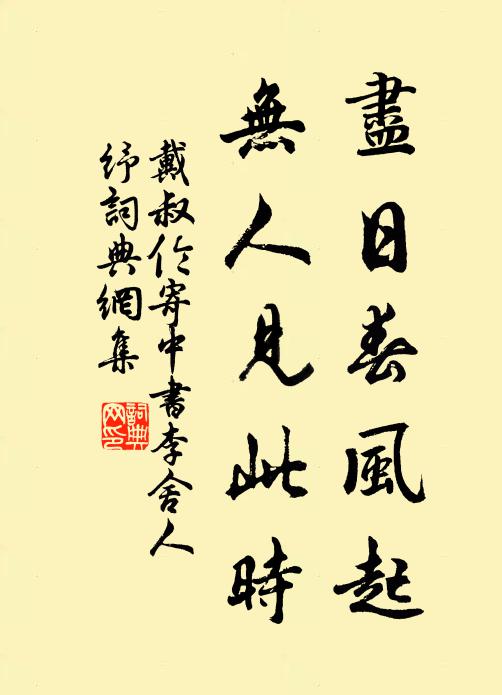 盡日春風起
無人見此時
戴叔伦寄中書李舍人
纾詞典網集
詞典
网印